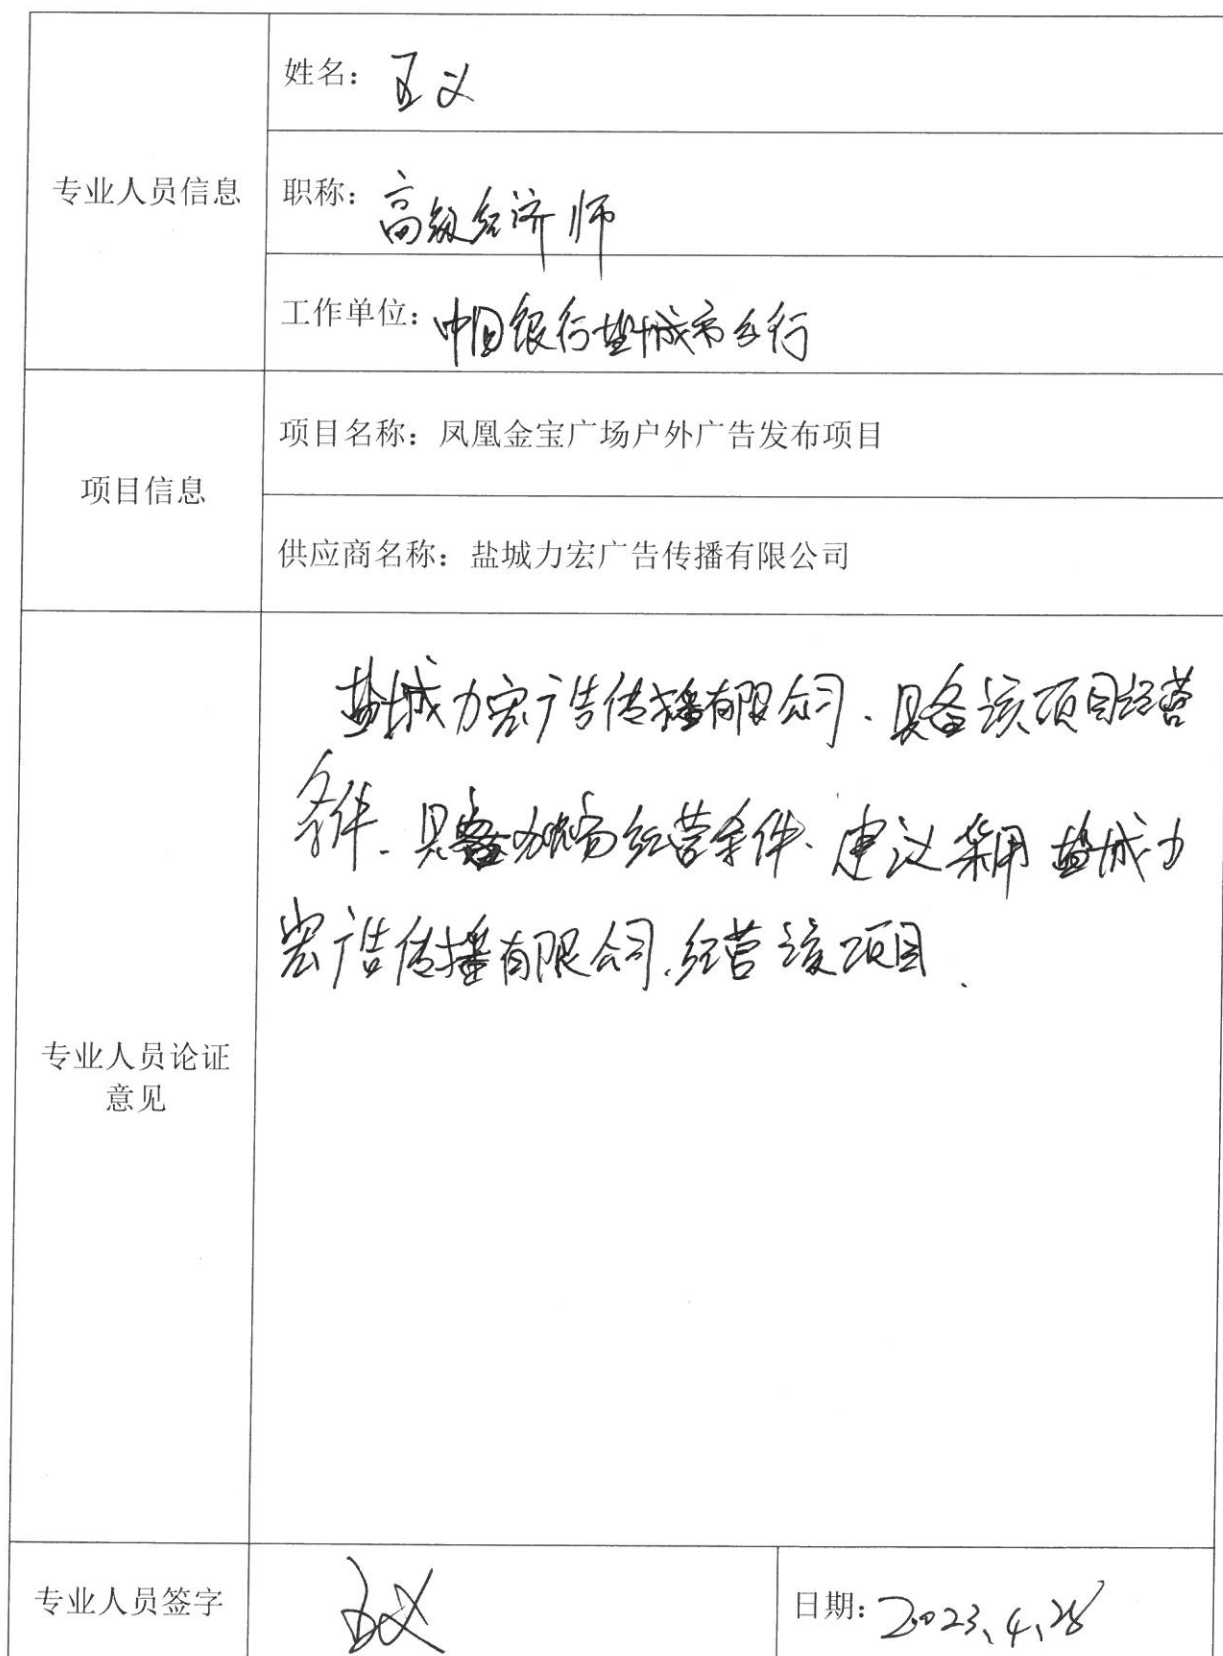 专业人员信息
姓名：王义
职称：高级经济师
工作单位：中国银行盐城市分行
项目信息
项目名称：凤凰金宝广场户外广告发布项目
供应商名称：盐城力宏广告传播有限公司
盐城力宏广告传播有限公司、具备该项目经营
条件、具备 经营条件、建议采用盐城力
宏广告传播有限公司、经营该项目.
专业人员论证
意见
专业人员签字
日期：2023、4、28